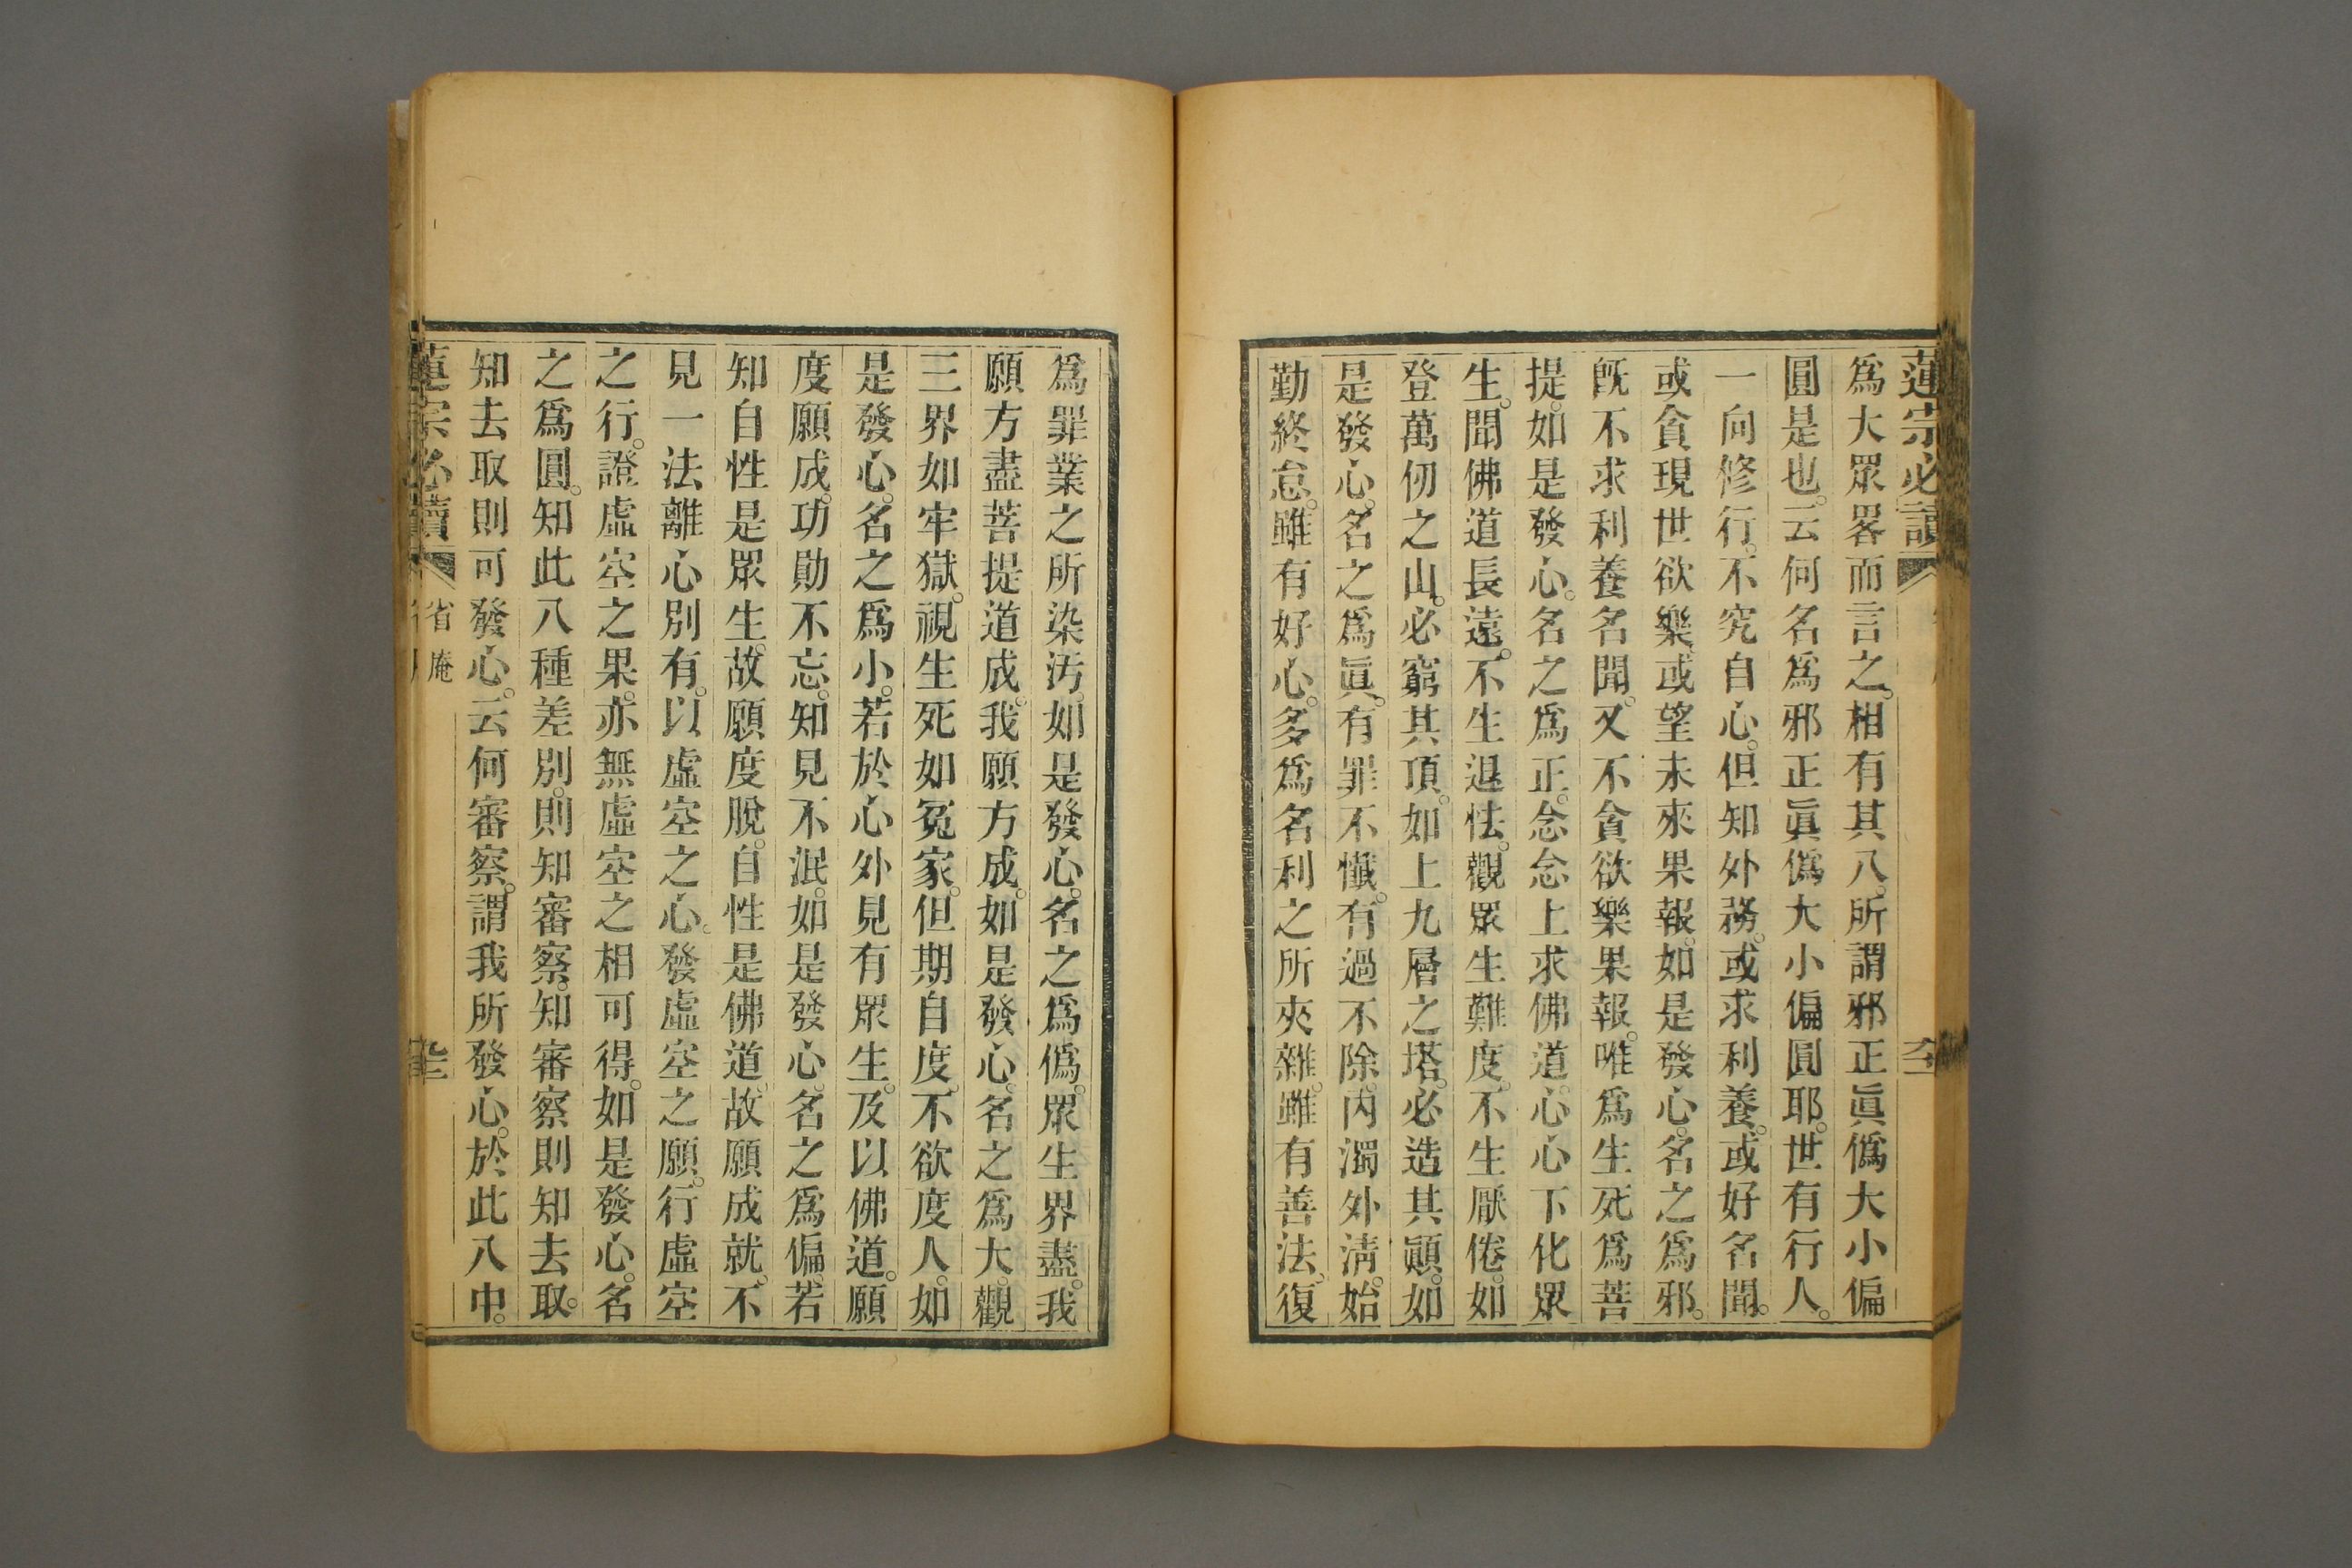 蓮宗必讀
爲大眾畧而言之。相有其八。所謂邪正眞僞大小偏
圓是也。云何名爲邪正眞僞大小偏圓耶。世有行人。
一向修行。不究自心。但知外務。或求利養。或好名聞。
或貪現世欲樂。或望未來果報。如是發心。名之爲邪。
旣不求利養名聞。又不貪欲樂果報。唯爲生死爲菩
提。如是發心。名之爲正。念念上求佛道。心心下化眾
生。聞佛道長遠。不生退怯。觀眾生難度。不生厭倦。如
登萬仞之山。必窮其頂。如上九層之塔。必造其顚。如
是發心。名之爲眞。有罪不懺。有過不除。內濁外淸。始
勤終怠。雖有好心。多爲名利之所夾雜。雖有善法。復
爲罪業之所染汚。如是發心。名之爲僞。眾生界盡。我
願方盡菩提道成。我願方成。如是發心。名之爲大。觀
三界如牢獄。視生死如冤家。但期自度。不欲度人。如
是發心。名之爲小。若於心外見有眾生。及以佛道。願
度願成。功勛不忘。知見不泯。如是發心。名之爲偏。若
知自性是眾生。故願度脫。自性是佛道。故願成就。不
見一法離心別有。以虛空之心。發虛空之願。行虛空
之行。證虛空之果。亦無虛空之相可得。如是發心。名
之爲圓。知此八種差別。則知審察。知審察則知去取。
知去取則可發心。云何審察。謂我所發心。於此八中。
蓮宗必讀
省庵